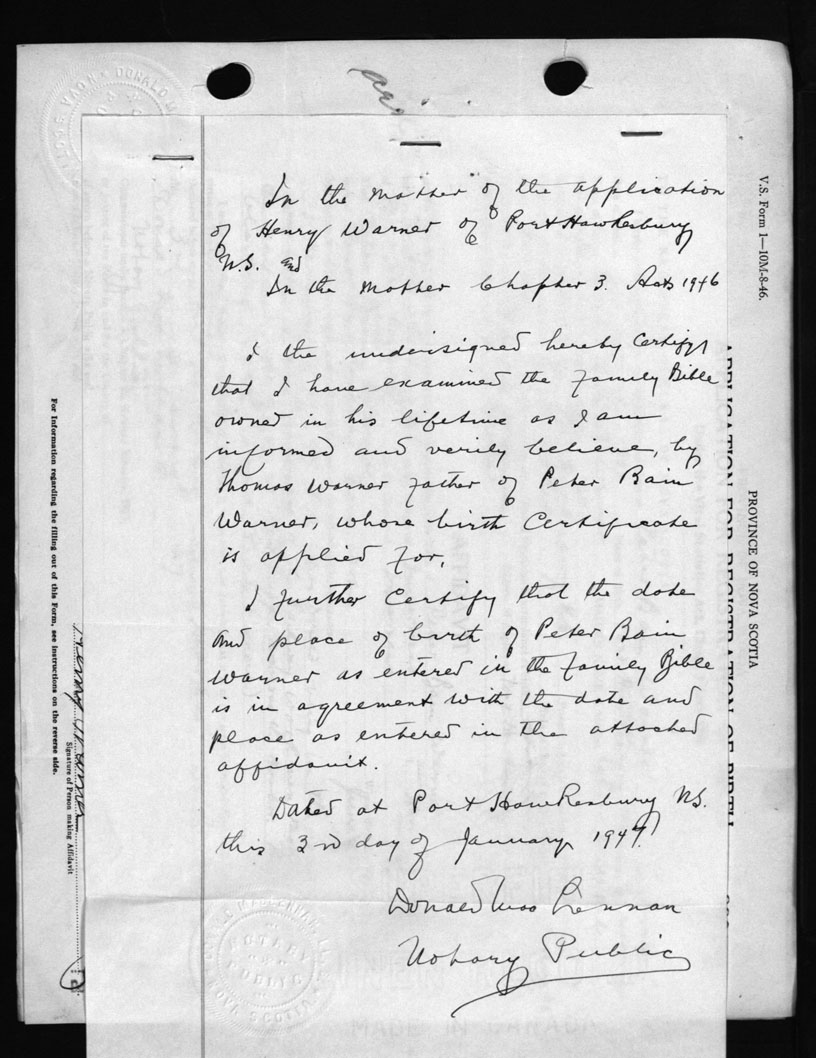 In the matter of the application
of Henry Warner of Port Hawkesbury
N.S. and
In the matter Chapter 3. Acts 1946
I the undersigned hereby Certify
that I have examined the family Bible
owned in his lifetime as I am
informed and verily believe, by
Thomas Warner father of Peter Bain
Warner, whose birth Certificate
is applied for.
I further Certify that the date
and place of birth of Peter Bain
Warner as entered in the family Bible
is in agreement with the date and
place as entered in the attached
affidavit.
Dated at Port Hawkesbury N.S.
this 3rd day of January 1947.
Donald Mac Lennan
Notary Public
V.S. Form 1—10M-8-46.
PROVINCE OF NOVA SCOTIA
APPLICATION FOR REGISTRATION OF BIRTH
Henry Warner
Signature of Person making Affidavit
For Information regarding the filling out of this Form, see instructions on the reverse side.
NOTARY
PUBLIC
NOVA SCOTIA
MADE IN CANADA